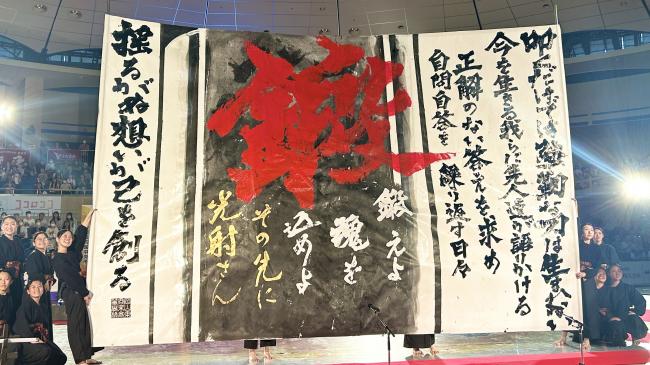 今を生きる我らに先人達が語りかける
正解のない答えを求め
自問自答を繰り返す日々
鍛
鍛えよ
魂を
込めよ
その先に
光射さん
揺るがぬ想いが己を創る